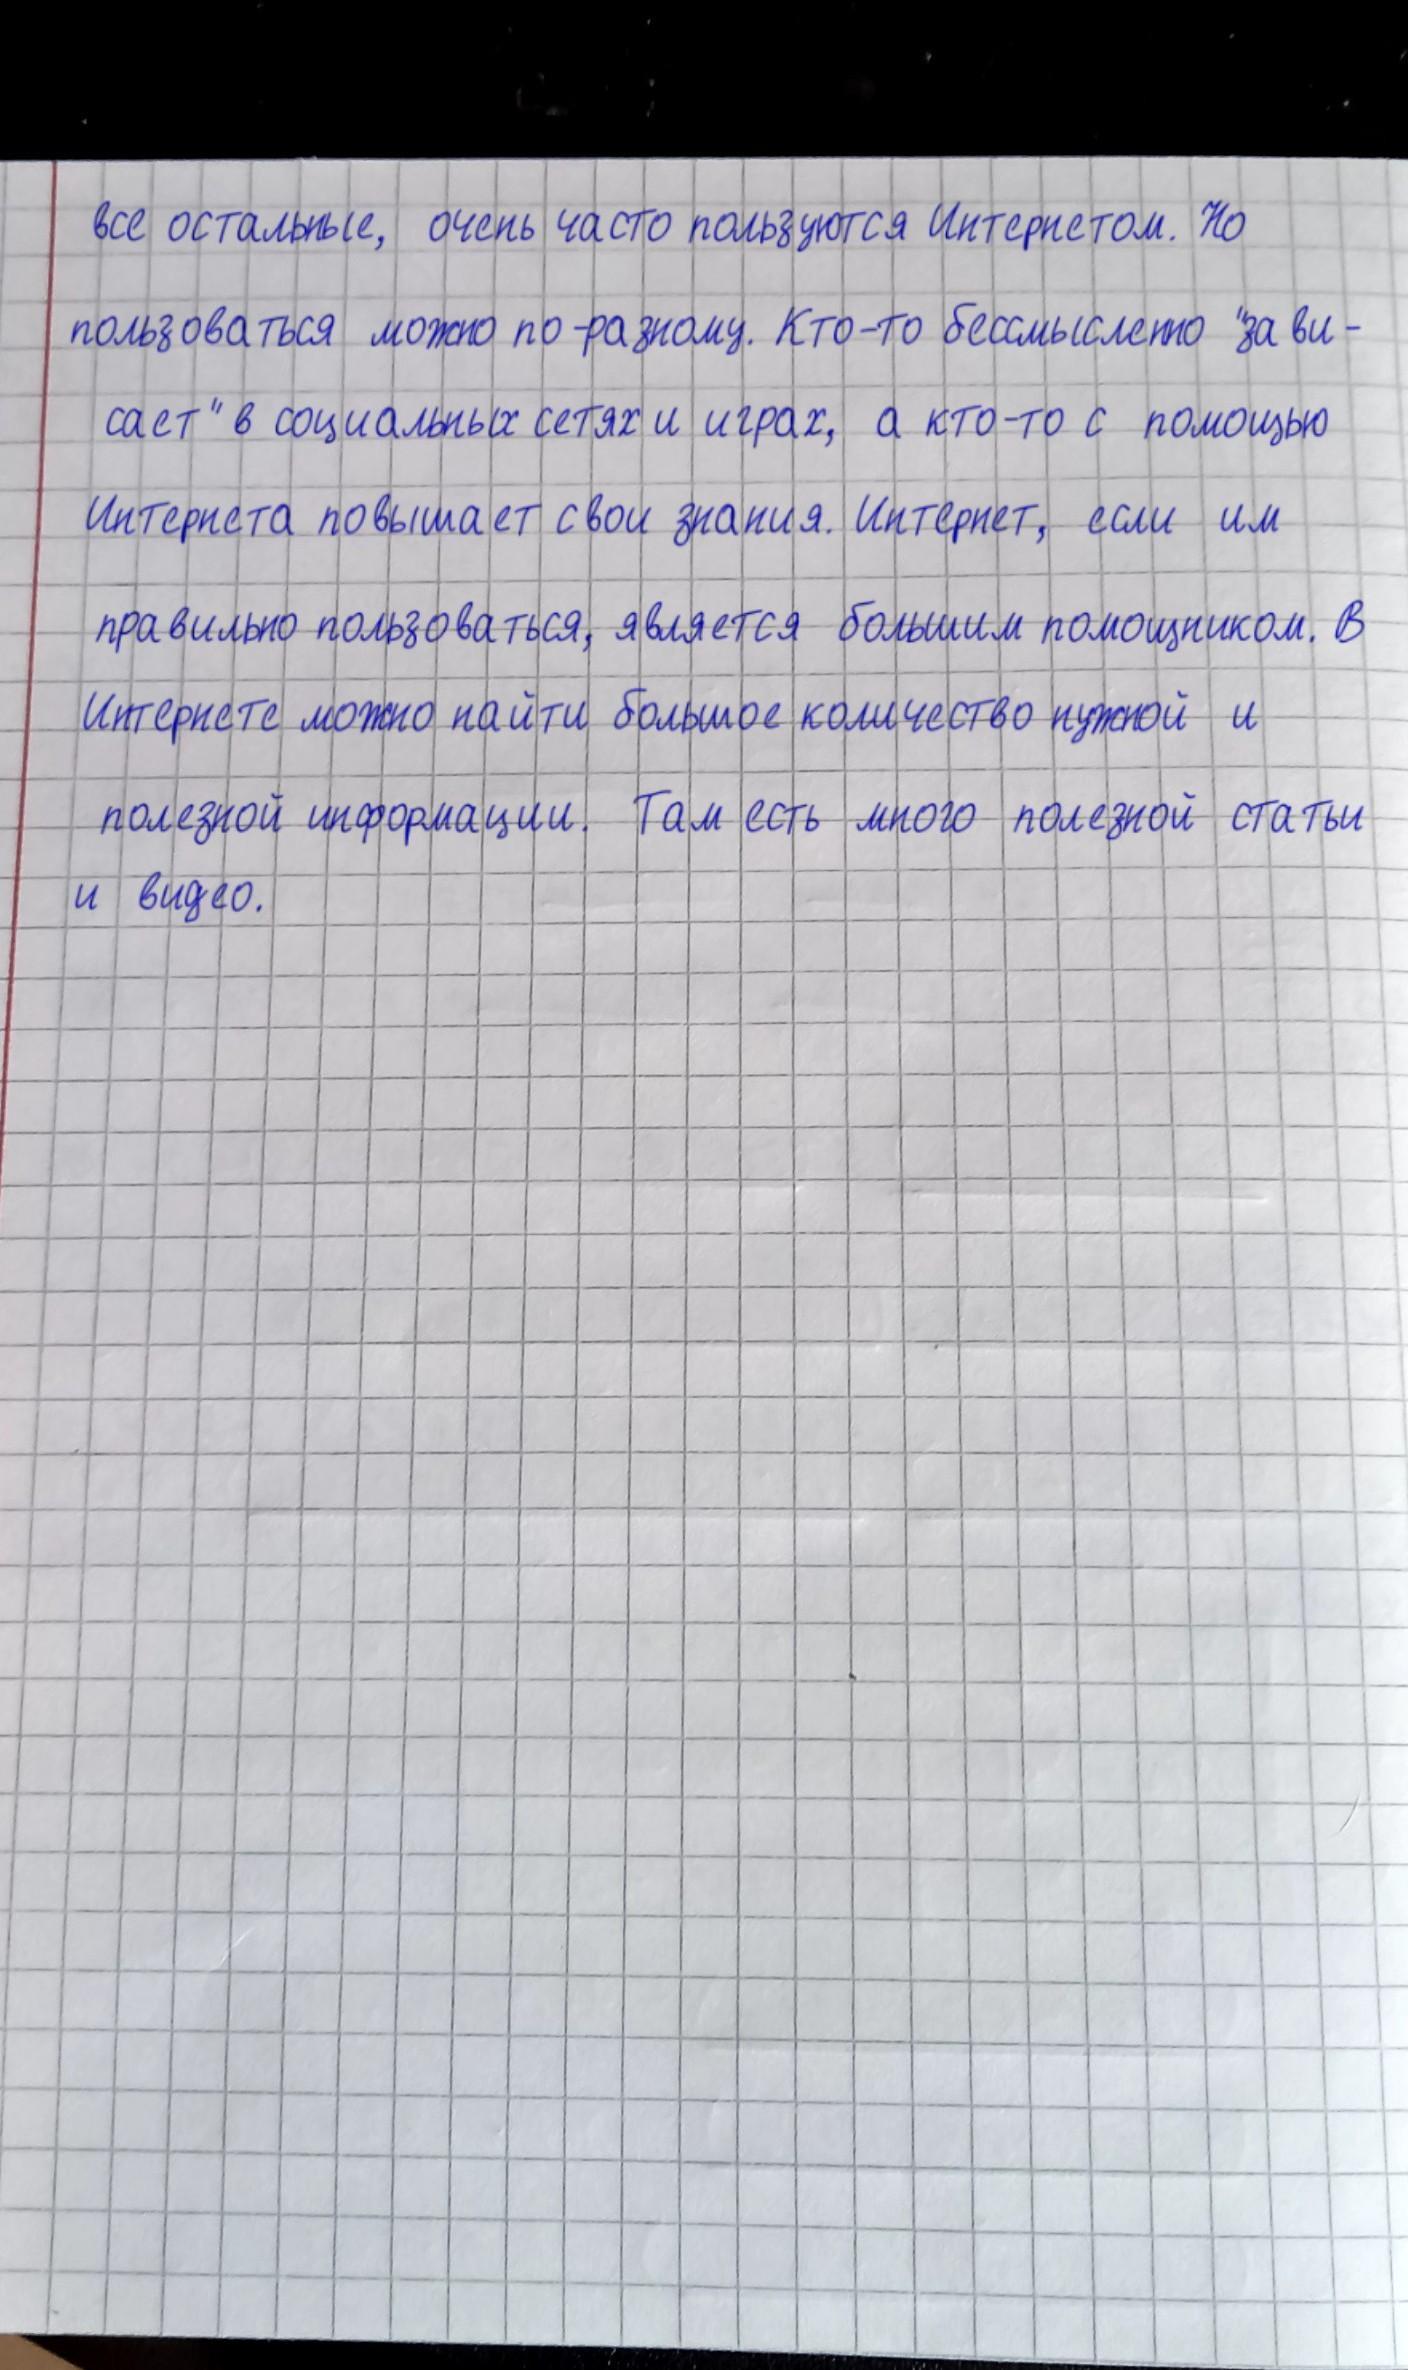 все остальные, очень часто пользуются Интернетом. Но
пользоваться можно по-разному. Кто-то бессмысленно "зави-
сает" в социальных сетях и играх, а кто-то с помощью
Интернета повышает свои знания. Интернет, если им
правильно пользоваться, является большим помощником. В
Интернете можно найти большое количество нужной и
полезной информации. Там есть много полезной статьи
и видео.